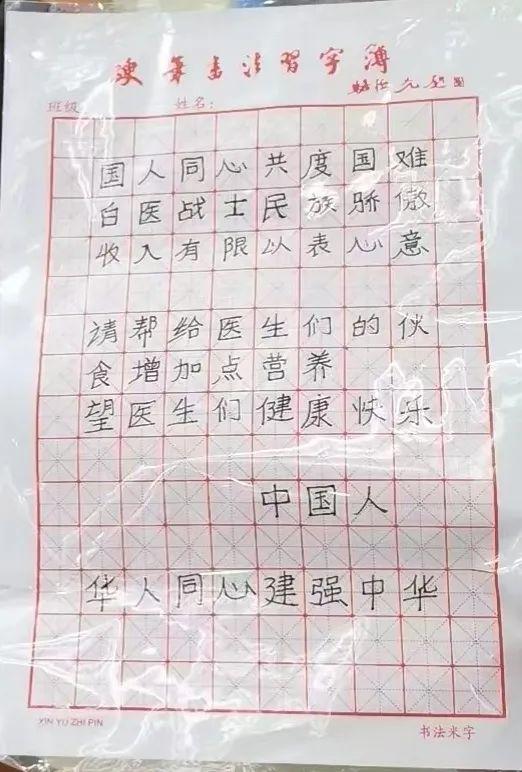 硬笔书法习字簿
班级
姓名：
国人同心共度国难
白医战士民族骄傲
收入有限以表心意
请帮给医生们的伙
食增加点营养
望医生们健康快乐
中国人
华人同心建强中华
XIN YU ZHI PIN
书法米字